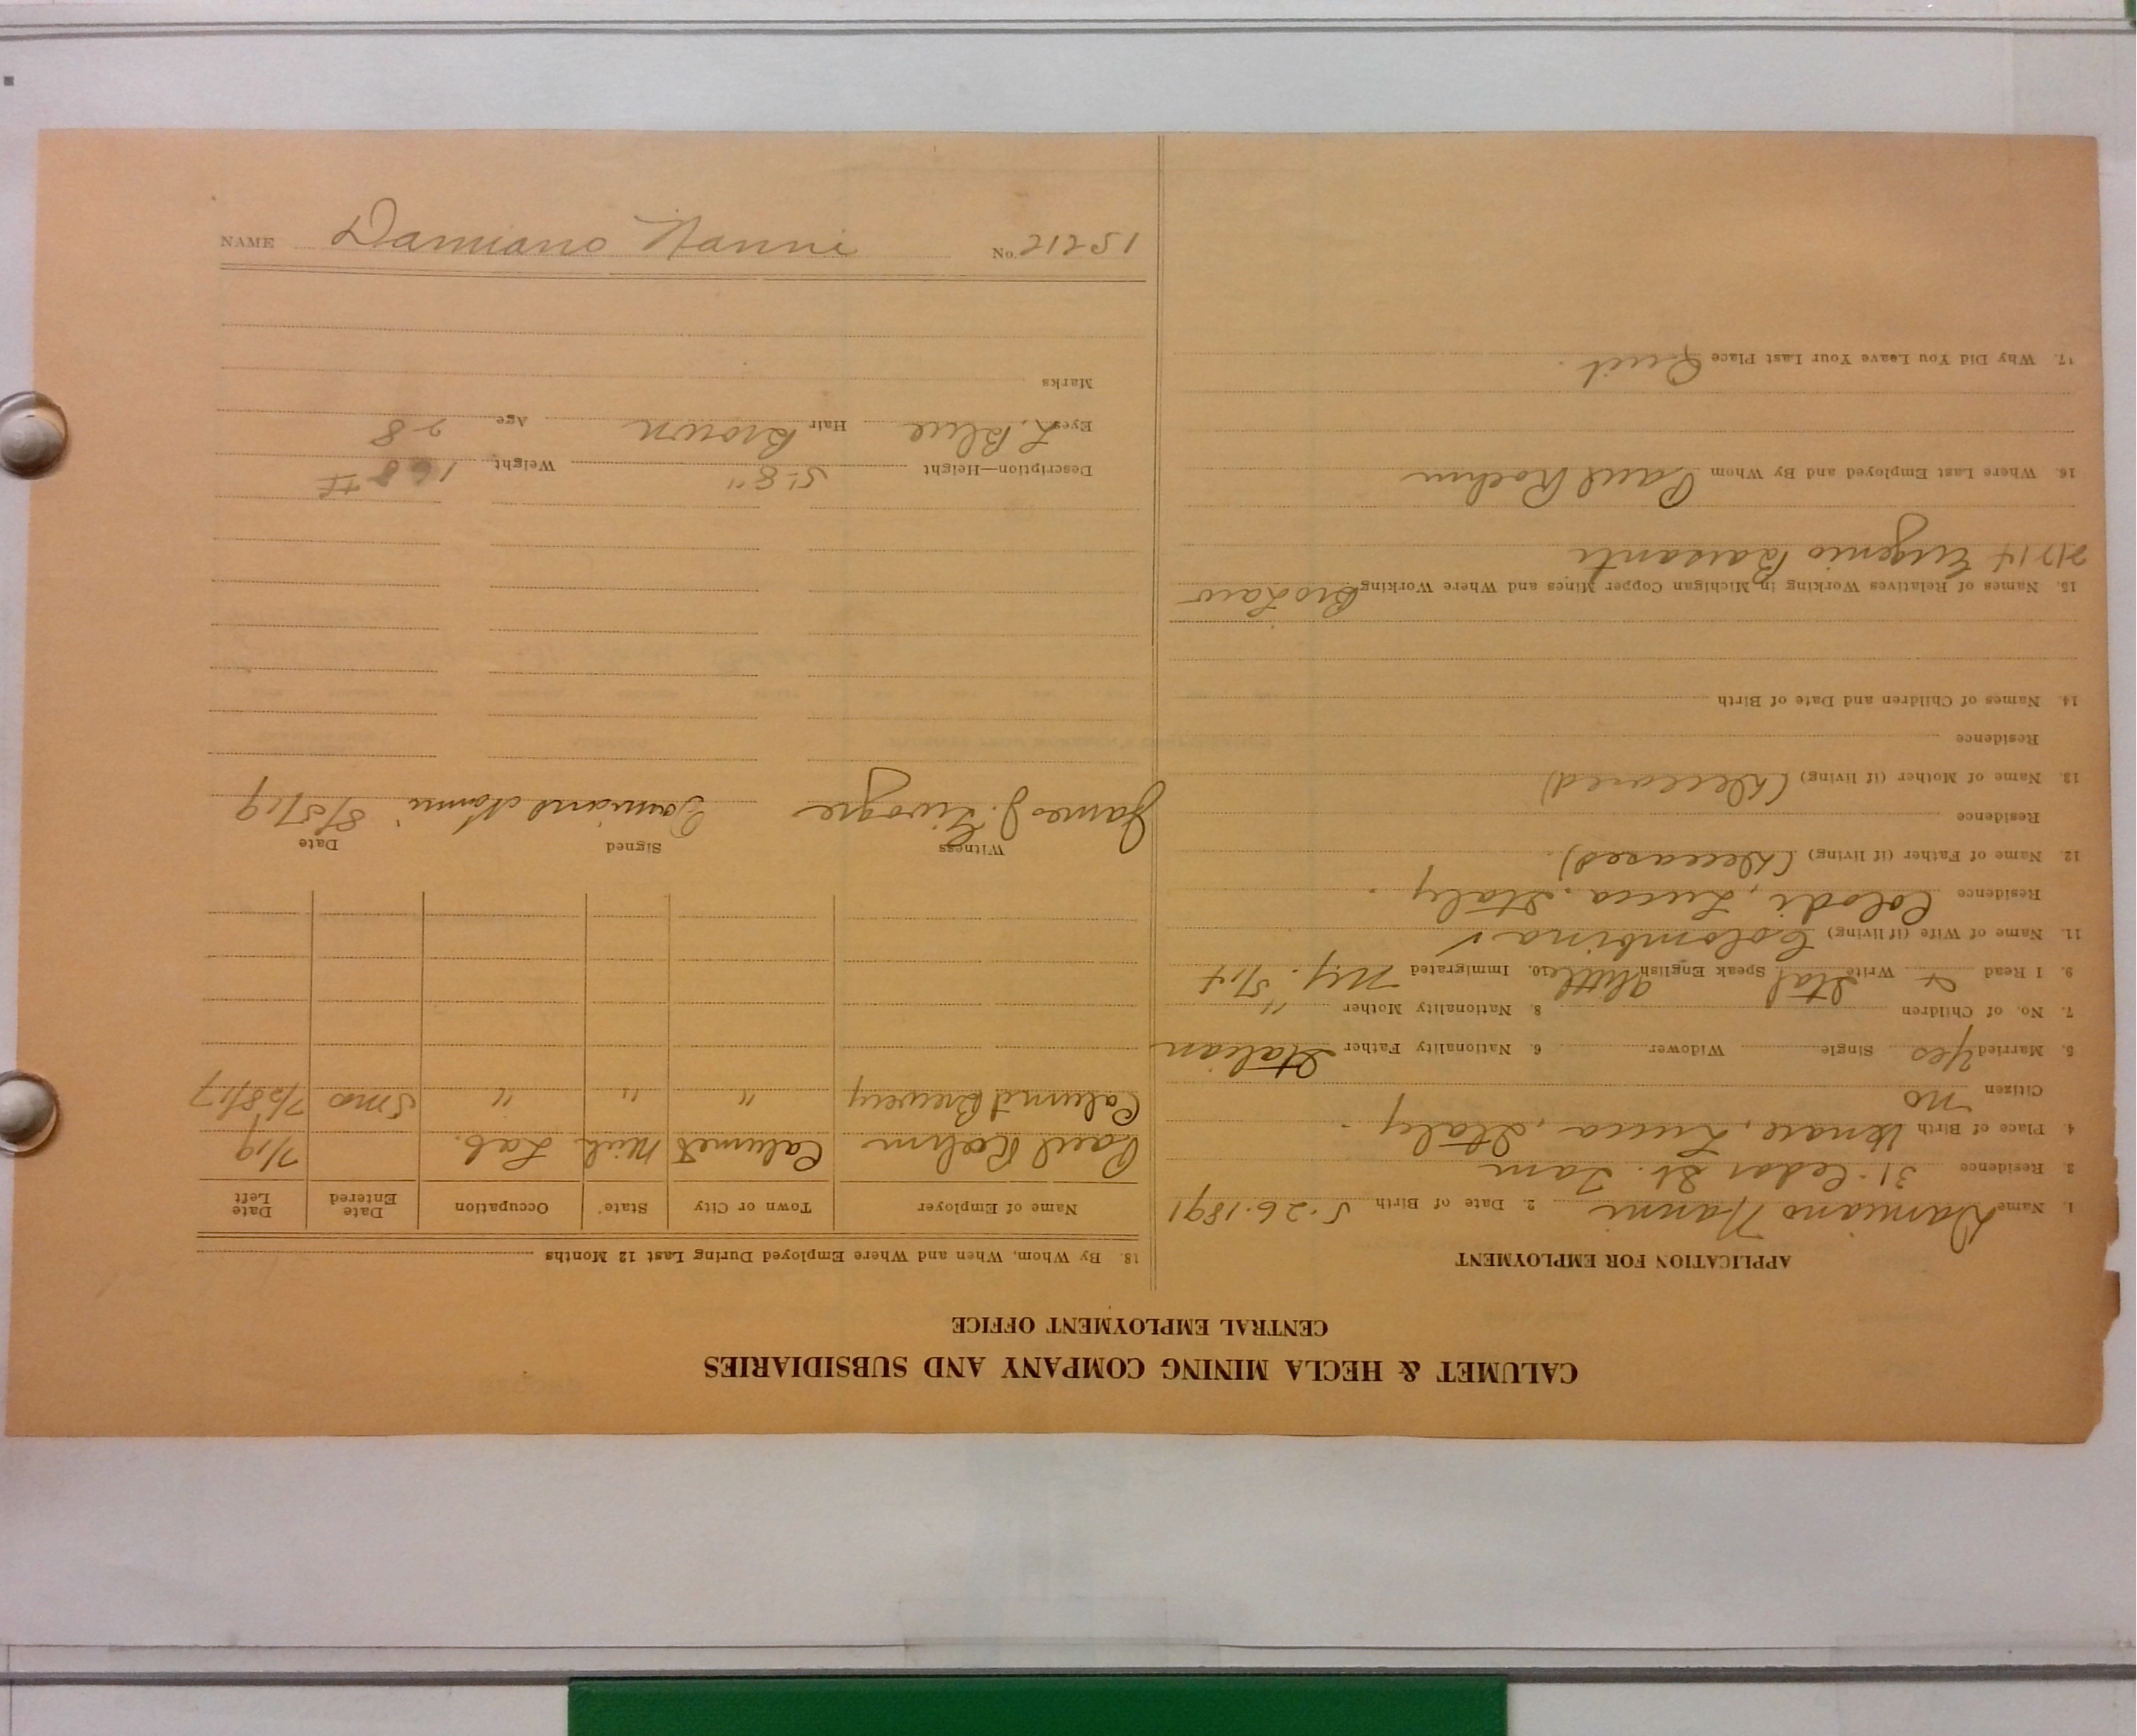 CALUMET & HECLA MINING COMPANY AND SUBSIDIARIES
CENTRAL EMPLOYMENT OFFICE
APPLICATION FOR EMPLOYMENT
1. Name Damiano Nanni 2. Date of Birth 5-26-1891
3. Residence 31-Cedar St. Tam
4. Place of Birth Lucca, Italy
Citizen no
5. Married Yes Single Widower 6. Nationality Father Italian
7. No. of Children 8. Nationality Mother "
9. I Read & Write Ital Speak English little 10. Immigrated N.Y. 5/14
11. Name of Wife (if living) Colombina
Residence Colodi, Lucca, Italy
12. Name of Father (if living) (Deceased)
Residence
13. Name of Mother (if living) (Deceased)
Residence
14. Names of Children and Date of Birth
15. Names of Relatives Working in Michigan Copper Mines and Where Working Bro Law
21714 Eugenio Barsanti
16. Where Last Employed and By Whom Paul Roehm
17. Why Did You Leave Your Last Place Quit.
18. By Whom, When and Where Employed During Last 12 Months
Name of Employer Town or City State Occupation Date Entered Date Left
Paul Roehm Calumet Mich Lab. 7/19
Calumet Brewery " " " 5 mo 7/28/17
Witness Signed Date
James J. Damiano Nanni 8/5/19
Description—Height 5'-8" Weight 168 #
Eyes L. Blue Hair Brown Age 28
Marks
NAME Damiano Nanni No. 21251